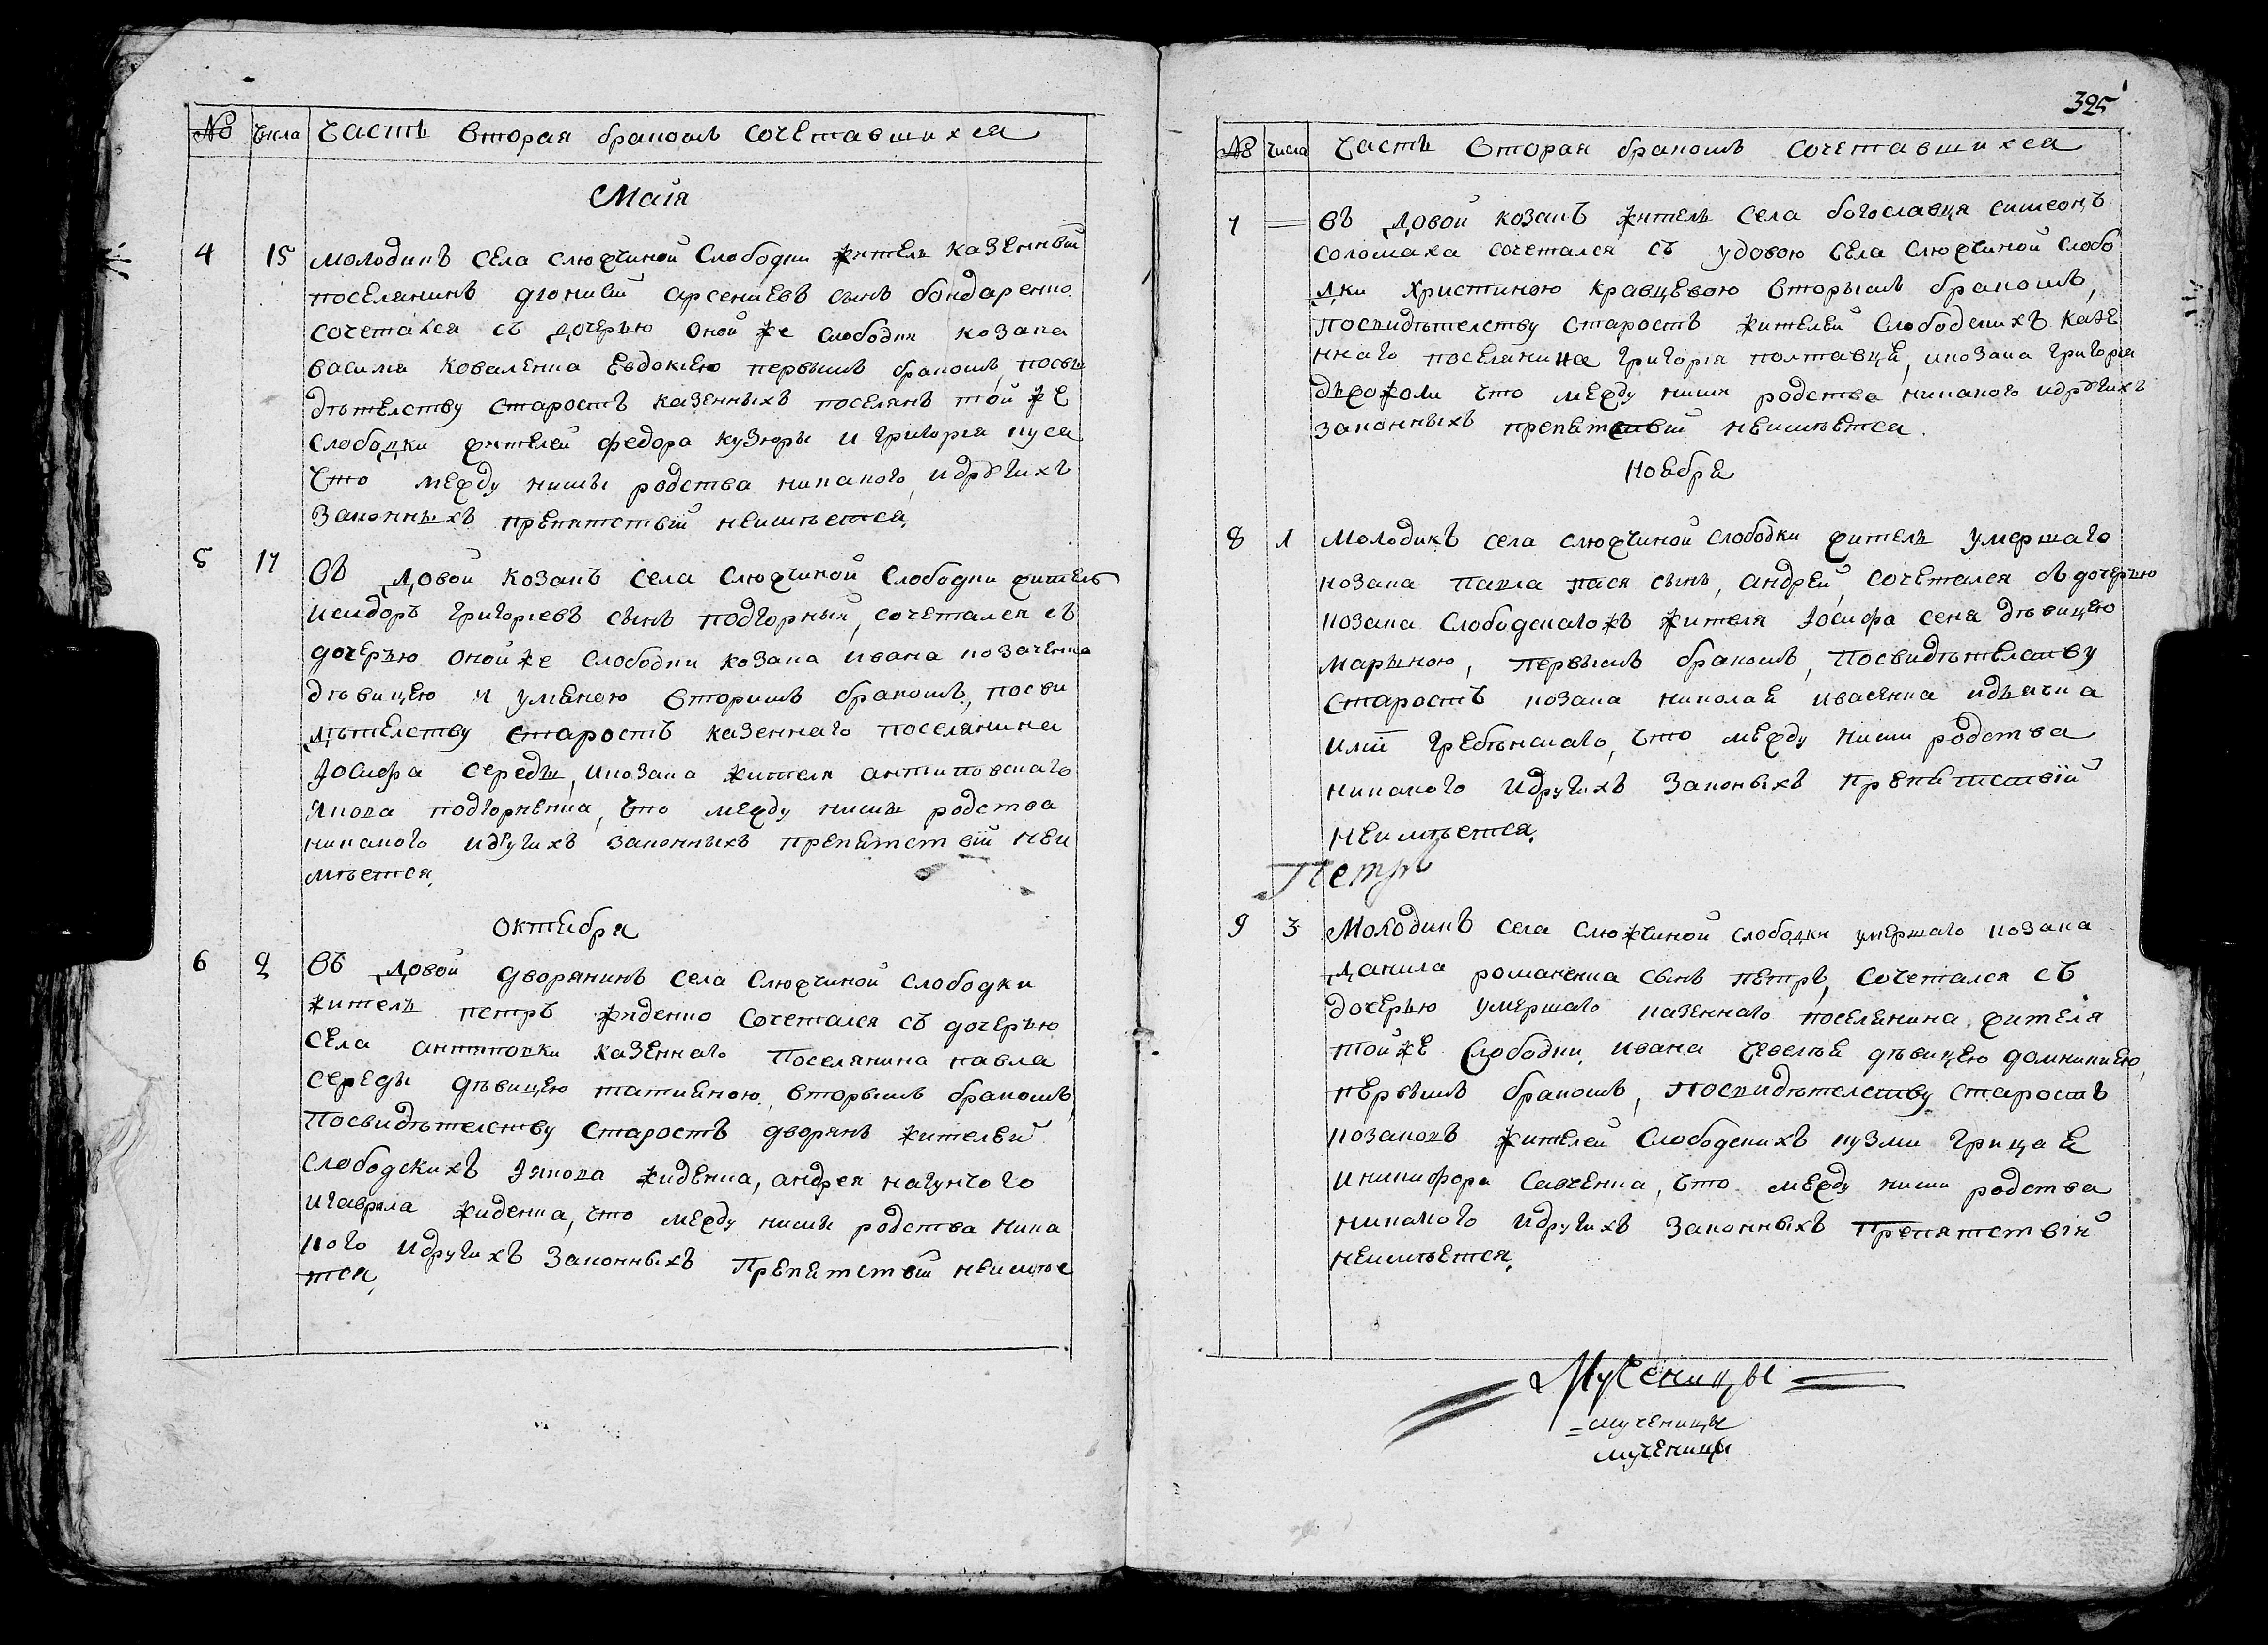 № Числа Часть вторая бракомъ сочетавшихся
Маія
4 15 Молодикъ села Слюжчиной Слободки житель казенный
поселянинъ Діонисій Арсеніевъ сынъ Бондаренко
сочетался съ дочерью оной же Слободки козака
Василя Коваленка Евдокіею первымъ бракомъ, посви
дѣтелству старостъ казенныхъ поселянъ той же
Слободки жителей Федора Кузюры и Григорія Куса
что между ними родства никакого, идругихъ
законныхъ препятствій неимѣется.
5 17 Въ довой козакъ села Слюжчиной Слободки житель
Исидоръ Григоріевъ сынъ Подгорный, сочетался съ
дочерью онойже Слободки козака Ивана Козаченка
дѣвицею И уліяною вторимъ бракомъ, посви
дѣтелству старостъ казеннаго поселянина
Іосифа Середы, икозака жителя антиповскаго
Якова Подгорненка, что между ними родства
никакого идругихъ законныхъ препятствій неи
мѣется.
Октября
6 9 Въ довой дворянинъ села Слюжчиной Слободки
житель Петръ Жиденко сочетался съ дочерью
села Антиповки казеннаго поселянина Павла
Середы дѣвицею Татияною, вторымъ бракомъ,
посвидѣтелству старостъ дворянъ жителей
Слободскихъ Іякова Жиденка, Андрея Нагунчого
иГаврила Жиденка, что между ними родства ника
кого идругихъ законныхъ препятствій неимѣе
тся,
325
№ Числа Часть вторая бракомъ сочетавшихся
7 = Въ довой козакъ житель села Богославця Симеонъ
Соломаха сочетался съ удовою села Слюжчиной Слобо
дки Христиною Кравцевою вторымъ бракомъ,
посвидѣтелству старостъ жителей Слободскихъ казе
ннаго поселянина Григорія Полтавця, икозака Григорія
что между ними родства никакого идругихъ
законныхъ препятствій неимѣется.
Ноября
8 1 Молодикъ села Слюжчиной Слободки житель умершаго
козака Павла Пася сынъ, Андрей, сочетался съ дочерью
козака Слободскагожъ жителя Іосифа Сеня дѣвицею
Марыною, первымъ бракомъ, посвидѣтелству
старостъ козака Николая Ивасенка идьячка
Иліи Гребѣнскаго, что между ними родства
никакого идругихъ законыхъ препятствій
неимѣется.
Петръ
9 3 Молодикъ села Слюжчиной Слободки умершаго козака
Данила Романенка сынъ Петръ, сочетался съ
дочерью умершаго казеннаго поселянина, жителя
тойже Слободки Ивана дѣвицею Домникиею,
первымъ бракомъ, посвидѣтелству старостъ
козаковъ жителей Слободскихъ Кузми Грицая
иникифора Савченка, что между ними родства
никакого идругихъ законныхъ препятствій
неимѣется,
Мученицы
мученицы
мученицы